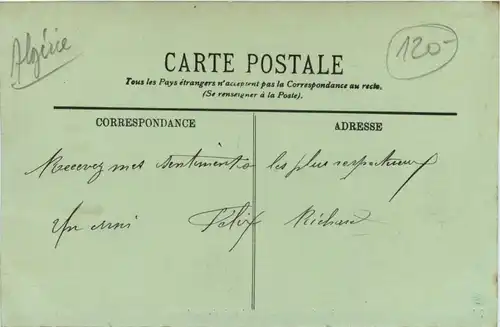 Algérie
120-
CARTE POSTALE
Tous les Pays étrangers n'acceptent pas la Correspondance au recto.
(Se renseigner à la Poste).
CORRESPONDANCE
ADRESSE
Recevez mes sentiments les plus respectueux
Un ami Félix Richard